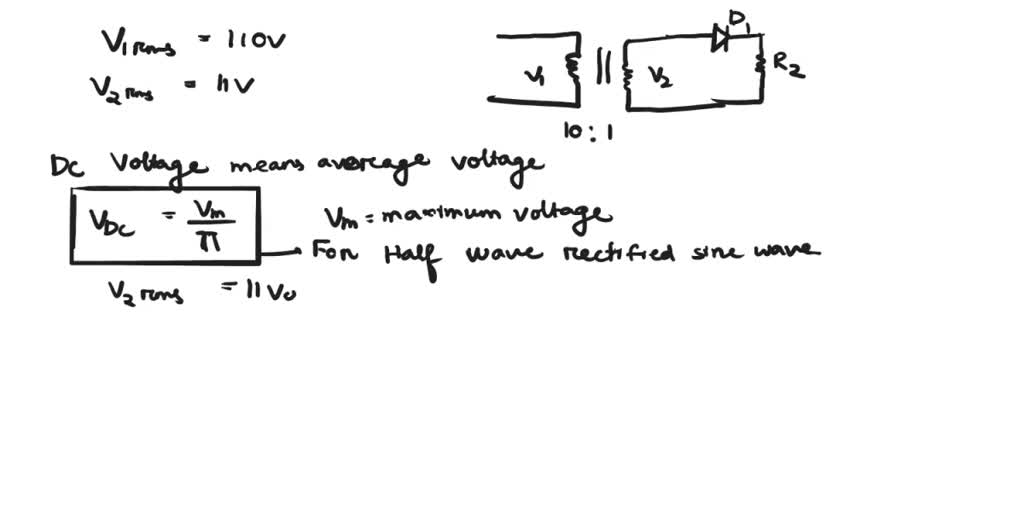 V1rms = 110V
V2rms = 11V
D1
V1
V2
R2
10:1
Dc Voltage means avereage voltage
VDC = Vm/π
Vm = maximum voltage
For Half wave rectified sine wave
V2rms = 11Vo